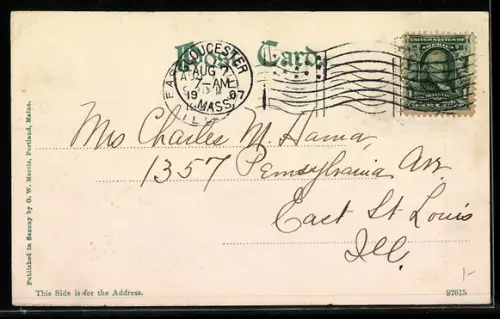 Post Card
EAST GLOUCESTER
AUG
7-AM
1907
MASS.
UNITED STATES OF
AMERICA
Mrs Charles M. Hamar,
1357 Pennsylvania Av.
East St Louis
Ill.
Published in Saxony by G. W. Morris, Portland, Maine.
This Side is for the Address.
97615
1-